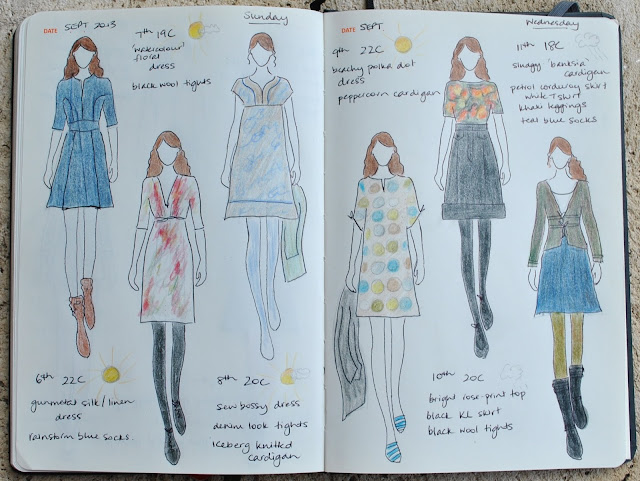 DATE SEPT 2013
7th 19C
'watercolour'
floral
dress
black wool tights
Sunday
6th 22C
gunmetal silk/linen
dress
rainstorm blue socks.
8th 20C
sew bossy dress
denim look tights
Iceberg knitted
cardigan
DATE SEPT
Wednesday
9th 22C
beachy polka dot
dress
peppercorn cardigan
11th 18C
'banksia'
cardigan
petrol corduroy skirt
white T shirt
khaki leggings
teal blue socks
10th 20C
bright rose-print top
black KL skirt
black wool tights